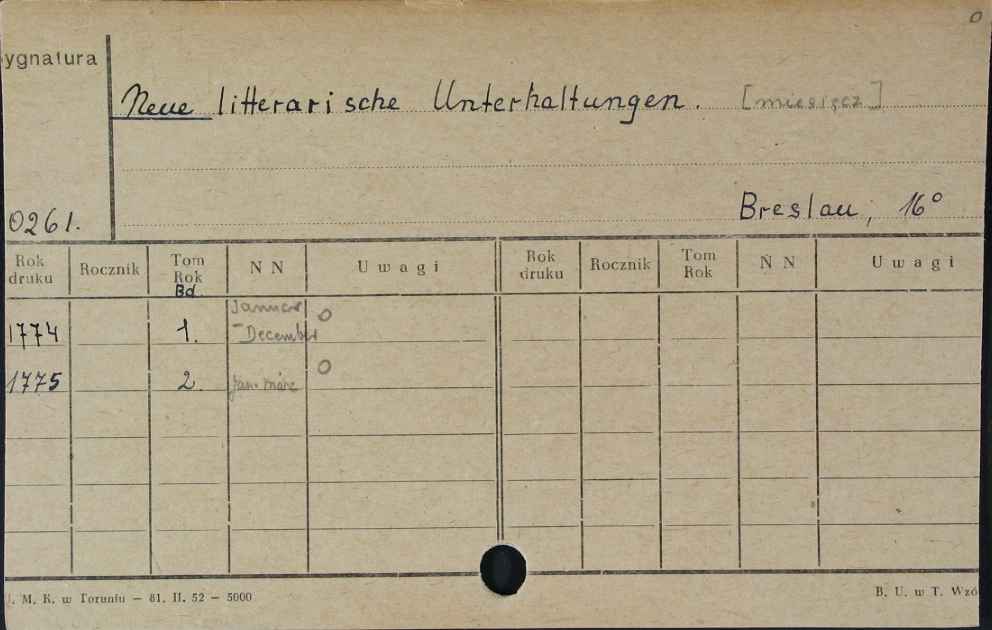 0
ygnatura
Neue litterarische Unterhaltungen. [miesięcz]
0261.
Breslau, 16°
Rok druku Rocznik Tom Rok Bd. N N Uwagi Rok druku Rocznik Tom Rok N N Uwagi
1774 1. Januar – December 0
1775 2. Jan. März 0
. M. K. w Toruniu — 81. II. 52 — 5000 B. U. w T. Wzó